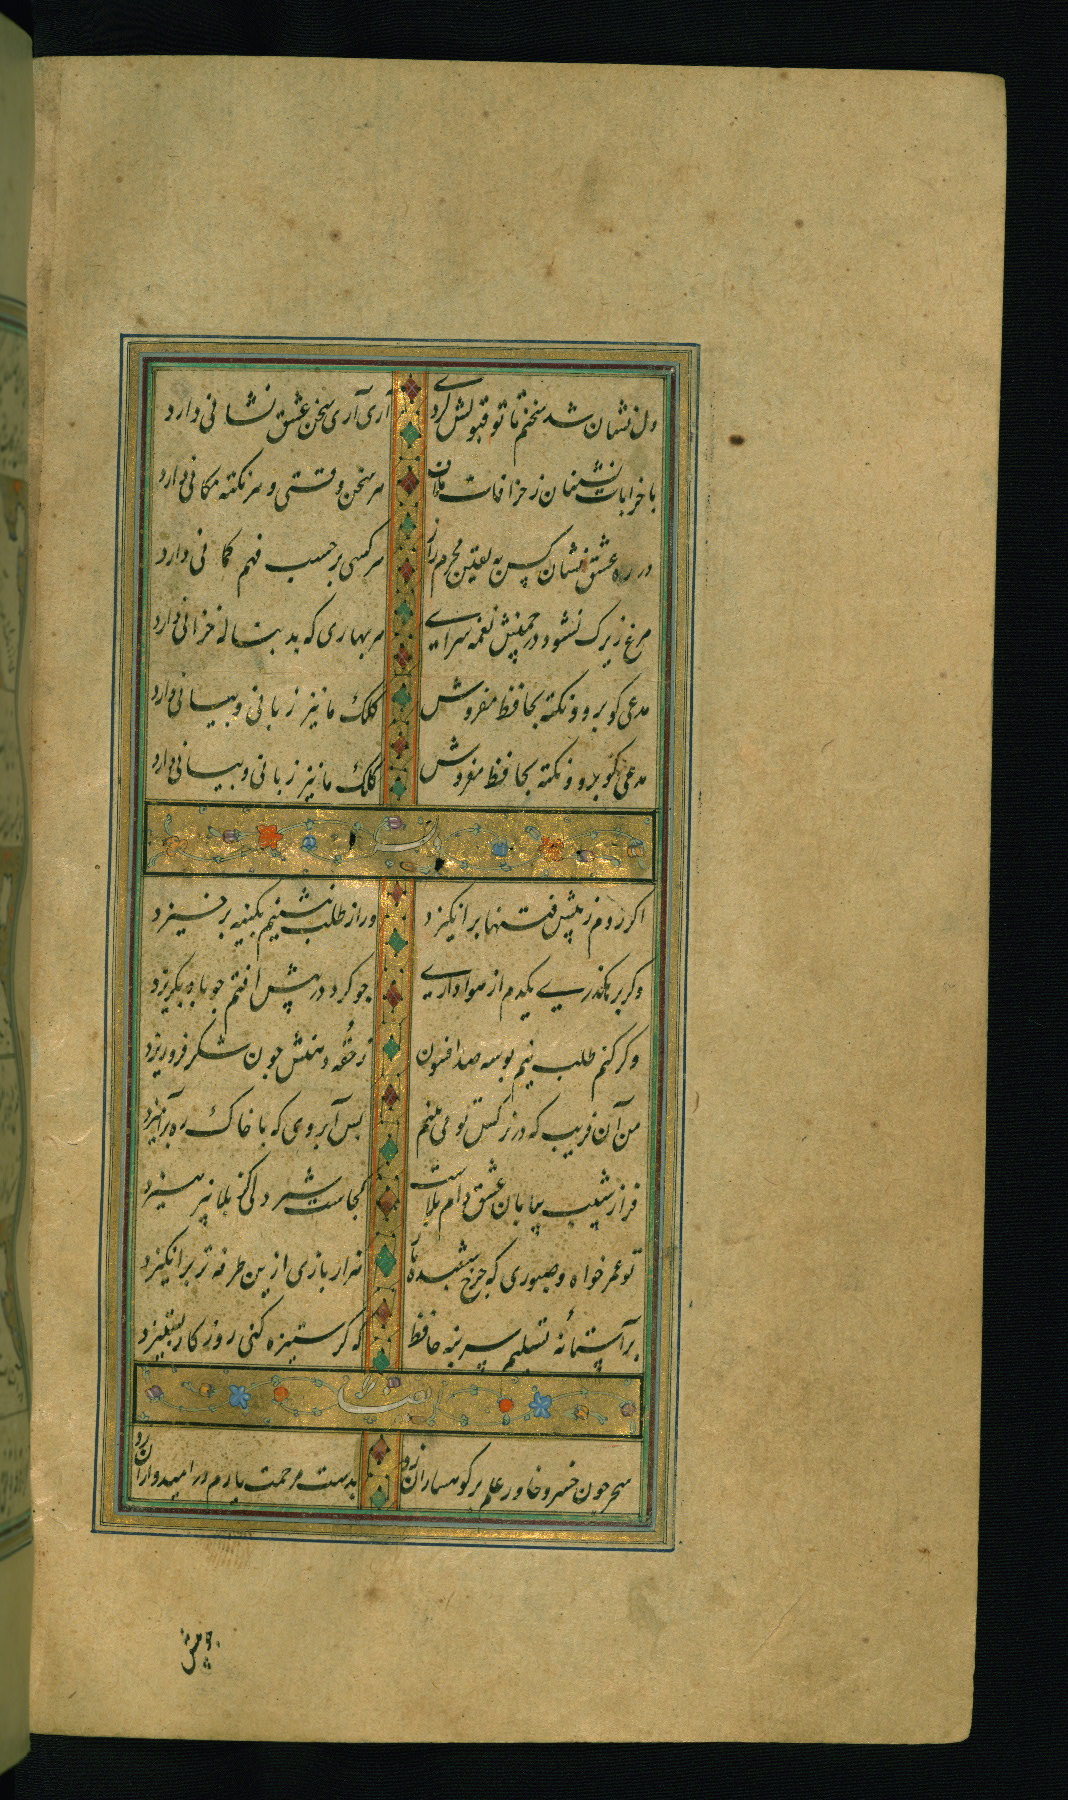 دل نشان شد سخنم تا تو قبولش کردی آری آری سخن عشق نشانی دارد
با خرابات نشینان ز خرافات ملاف هر سخن وقتی و هر نکته مکانی دارد
در ره عشق نشان کس نه یقین محرم راز هر کسی بر حسب فهم کمانی دارد
مرغ زیرک نشود در چمنش نغمه سرای هر بهاری که بدنباله خزانی دارد
مدعی کو برو و نکته بحافظ مفروش کلک ما نیز زبانی و بیانی دارد
مدعی کو برو و نکته بحافظ مفروش کلک ما نیز زبانی و بیانی دارد
وله
اکر روم ز پیش فتنها برانکیزد ور از طلب بنشینم بکینه برخیزد
وکر برهکذری یکدم از هواداری چو کرد در پیش افتم چو باد بکریزد
وکر کنم طلب نیم بوسه صد افسون ز حقه دهنش چون شکر فرو ریزد
من آن فریب که در نرکس تو می بینم بس آبروی که با خاک ره برآمیزد
فراز شیب بیابان عشق دام بلاست کجاست شیر دلی کز بلا نپرهیزد
تو عمر خواه و صبوری که چرخ شعبده باز هزار بازی ازین طرفه تر برانکیزد
بر آستانه تسلیم سر بنه حافظ که کر ستیزه کنی روزکار بستیزد
سحر چون خسرو خاور علم بر کوهساران زد بدست مرحمت یارم در امیدواران زد